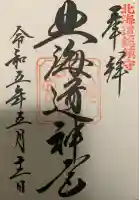 北海道総鎮守
奉拝
北海道神宮
令和五年五月十二日